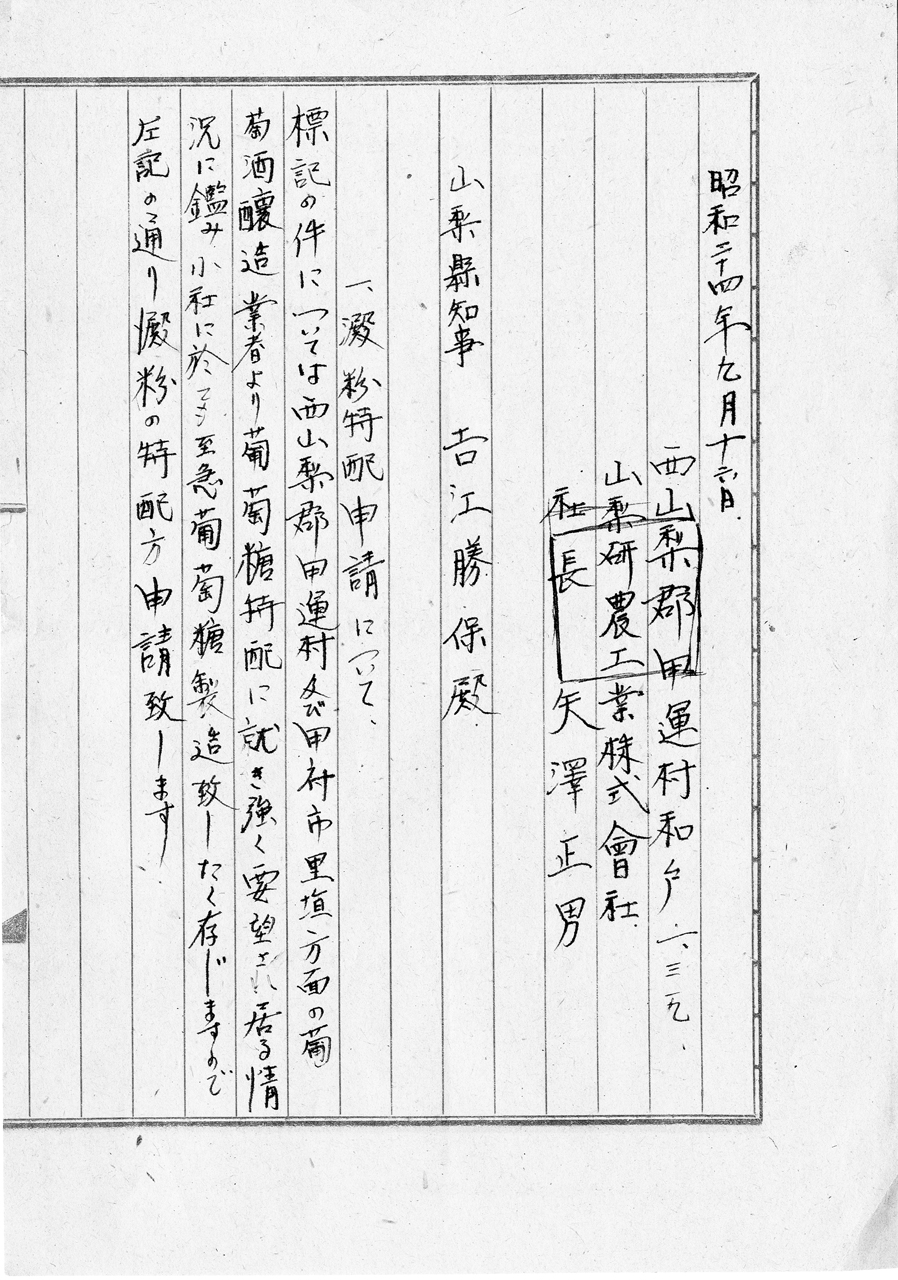 昭和二十四年九月十六日
西山梨郡甲運村和戸一、三一九
山梨研農工業株式會社
社長 矢澤正男
山梨縣知事 吉江勝保殿
一、澱粉特配申請について、
標記の件については西山梨郡甲運村及び甲府市里垣方面の葡
萄酒釀造業者より葡萄糖特配に就き強く要望され居る情
況に鑑み小社に於ても至急葡萄糖製造致したく存じますので
左記の通り澱粉の特配方申請致します